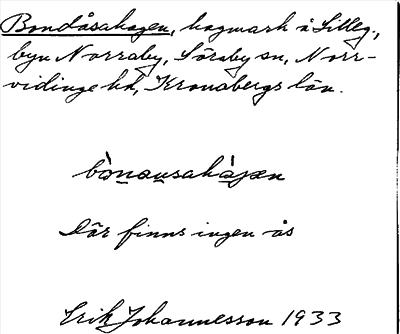 Bondåsahagen, hagmark å Lilleg.,
byn Norraby, Söraby sn, Norr-
vidinge hd, Kronobergs län.
bònaṵsahàgæn
Där finns ingen ås
Erik Johannesson 1933